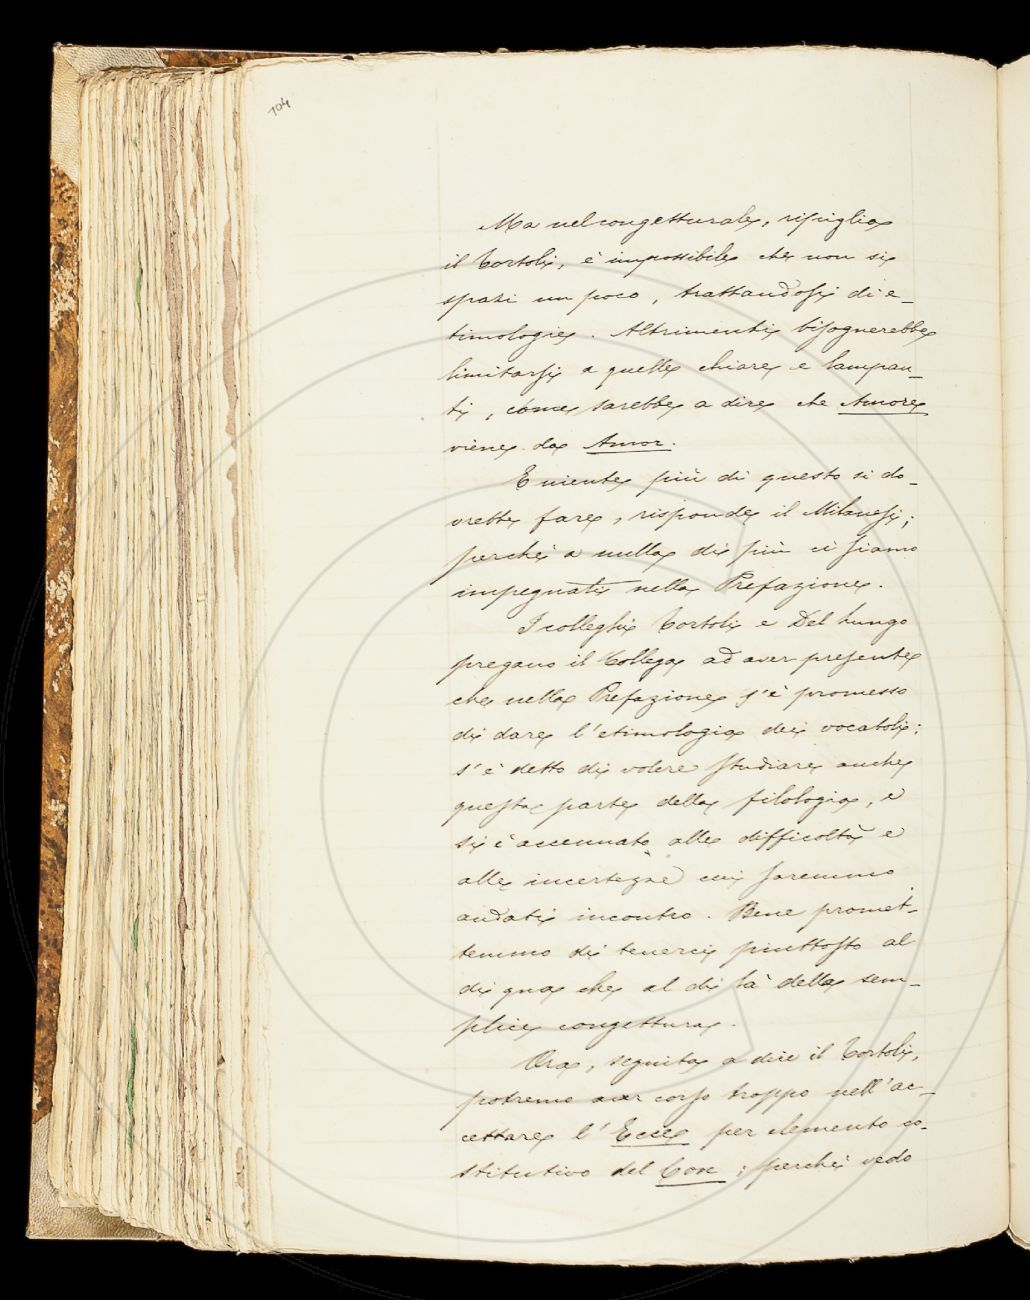 104
Ma nel congetturale, ripiglia
il Tortoli, è impossibile che non si
spazi un poco, trattandosi di e-
timologie. Altrimenti bisognerebbe
limitarsi a quelle chiare e lampan-
ti, come sarebbe a dire che Amore
viene da Amor.
E niente più di questo si do-
vrebbe fare, risponde il Milanesi;
perchè a nulla di più ci siamo
impegnati nella Prefazione.
I colleghi Tortoli e Del Lungo
pregano il Collega ad aver presente
che nella Prefazione s'è promesso
di dare l'etimologia dei vocaboli;
s'è detto di volere studiare anche
questa parte della filologia, e
si è accennato alle difficoltà e
alle incertezze cui saremmo
andati incontro. Bene promet-
temmo di tenerci piuttosto al
di qua che al di là della sem-
plice congettura.
Ora, seguita a dire il Tortoli,
potremo aver corso troppo nell'ac-
cettare l'Ecce per elemento co-
stitutivo del Con; perchè vedo